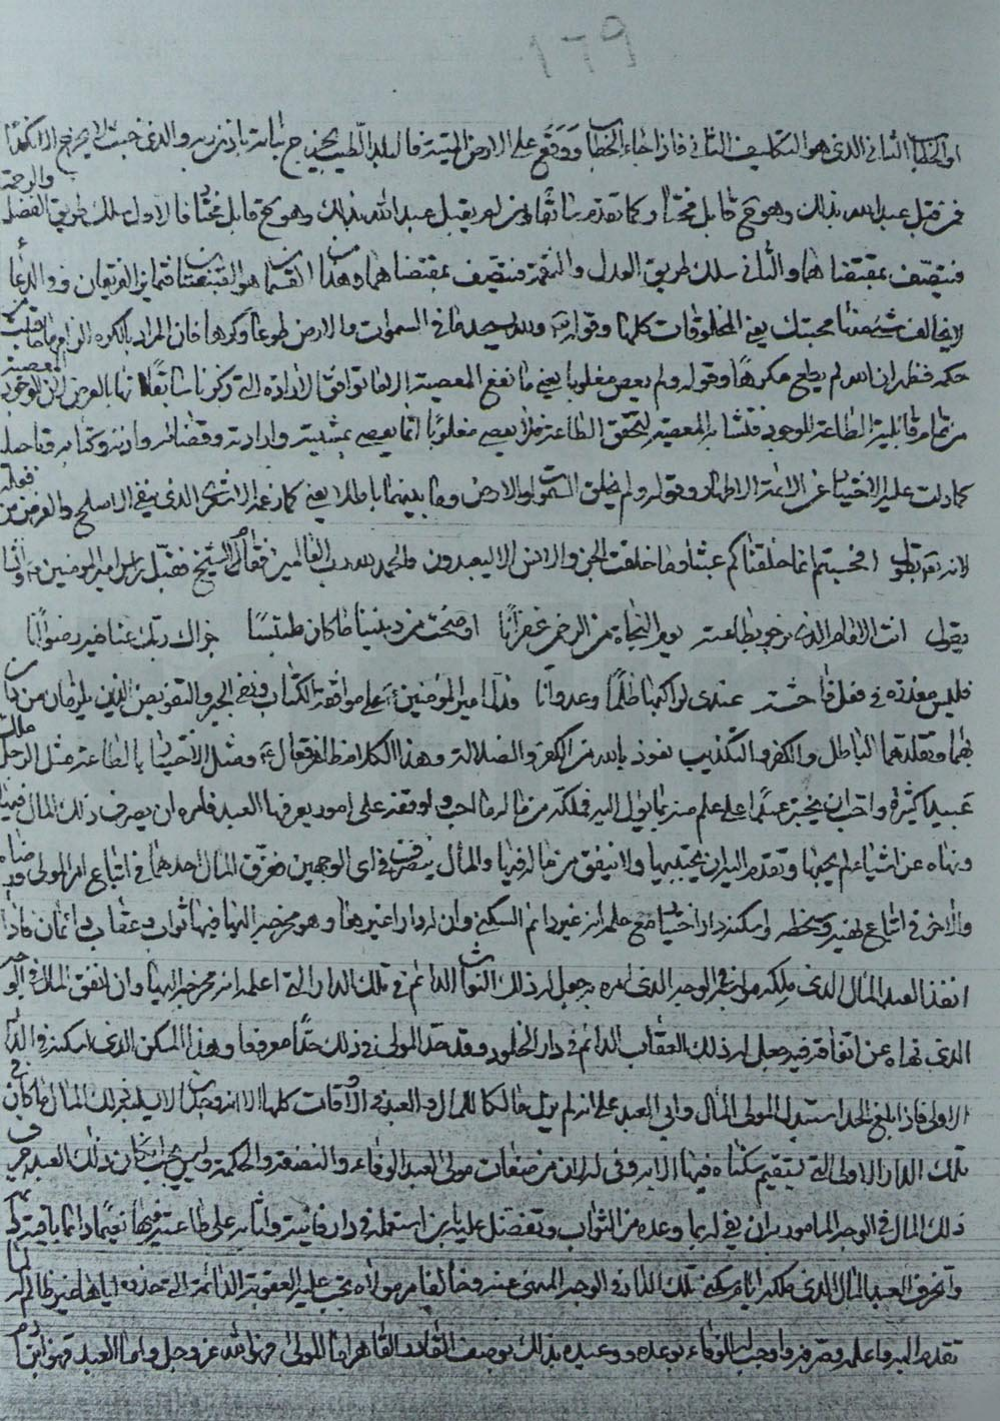 ١٦٩
او الخطاب الثاني الذي هو التكليف الثاني فاذا جاء الخطاب ووقع على الارض الميتة فالبلد الطيب يخرج نباته باذن ربه والذي خبث لا يخرج الا نكدا
فمن قبل عبد الله بذلك وهو تح قابل مختار وكما تقدم سابقا ومن لم يقبل عبد الله بذلك وهو تح قابل مختار فالاول سلك طريق الفضل والرحمة
فيتصف بمقتضاهما والثاني سلك طريق العدل والنقمة فيتصف بمقتضاهما وهذان القسمان هما القبضتان فتمايز الفريقان وفي الدعاء
لا يخالف شيء منها محبتك يعني المخلوقات كلها وقوله تع ولله يسجد من في السموات والارض طوعا وكرها فان المراد بالكره الزام ما
حكمه فظهر ان الله لم يطع مكرها وقوله ولم يعص مغلوبا يعني ما تقع المعصية الا بما توافق الارادة التي ذكرنا سابقا
من تمام قابلية الطاعة للوجود فتنشا به المعصية لتحقق الطاعة فلا يعصى مغلوبا انما يعصى بمشيته وارادته وقضائه واذنه وكتابه واجله
كما دلت عليه الاخبار عن الائمة الاطهار وقوله ولم يخلق السموات والارض وما بينهما باطلا يعني كما زعمه الاشعري الذي ينفي الاصلح والغرض من فعله
لانه تع يقول افحسبتم انما خلقناكم عبثا وما خلقت الجن والانس الا ليعبدون والحمد لله رب العالمين فقام الشيخ فقبل راس امير المؤمنين ع وانشا
يقول انت الامام الذي نرجو بطاعته يوم النجاة من الرحمن غفرانا اوضحت من ديننا ما كان ملتبسا جزاك ربك عنا خير رضوانا
فليس معذرة في فعل فاحشة عندي لراكبها ظلما وعدوانا فدل امير المؤمنين ع على موافقة الكتاب ونفي الجبر والتفويض الذين يلزمان من دان
بهما وتقلدهما الباطل والكفر والتكذيب نعوذ بالله من الكفر والضلالة وهذا الكلام ظاهر فقال ع ومثل الاختبار بالطاعة مثل الرجل ملك
عبيدا كثيرة واحب ان يختبر عبده على علم منه بما يؤل اليه فملكه من ماله ما احب ووقفه على امور يعرفها العبد فامره ان يصرف ذلك المال فيها
ونهاه عن اشياء لم يحبها وتقدم اليه ان يجتنبها ولا ينفق من ماله فيها والمال يتصرف في اي الوجهين فصرف المال احدهما في اتباع امر المولى ورضاه
والاخر في اتباع نهيه وسخطه واسكنه دار اختبار مع علمه انه غير دائم السكنى وان له دارا غيرها وهو مخرجه اليها فيها ثواب وعقاب دائمان فاذا
انفذ العبد المال الذي ملكه مولاه في الوجه الذي امره به جعل له ذلك الثواب الدائم في تلك الدار التي اعلمه انه مخرجه اليها وان انفق المال في الوجه
الذي نهاه عن انفاقه فيه جعل له ذلك العقاب الدائم في دار الخلود وقد حد المولى في ذلك حدا معروفا وهذا المسكن الذي اسكنه في الدار
الاولى فاذا بلغ الحد استبدل المولى المال وابى العبد على انه لم يزل مالكا للمال والعبد في الاوقات كلها الا انه وعد ان لا يسلبه ذلك المال ما كان في
تلك الدار الاولى الى ان يستتم سكناه فيها الا به وفى له لان من صفات المولى العبد الوفاء والنصفة والحكمة وليس يجب ان كان ذلك العبد صرف
ذلك المال في الوجه المامور به ان يفي له بما وعده من الثواب وتفضل عليه بان استعمله في دار فانية واثابه على طاعته فيها نعيما دائما باقيا
وان صرف العبد المال الذي ملكه ايام سكنى تلك الدار في الوجه المنهي عنه وخالف امر مولاه تجب عليه العقوبة الدائمة التي حذره اياها غير ظالم له لما
تقدم اليه واعلمه وعرفه واوجب له الوفاء بوعده ووعيده بذلك يوصف القادر القاهر اما المولى فهو الله عز وجل واما العبد فهو ابن ادم